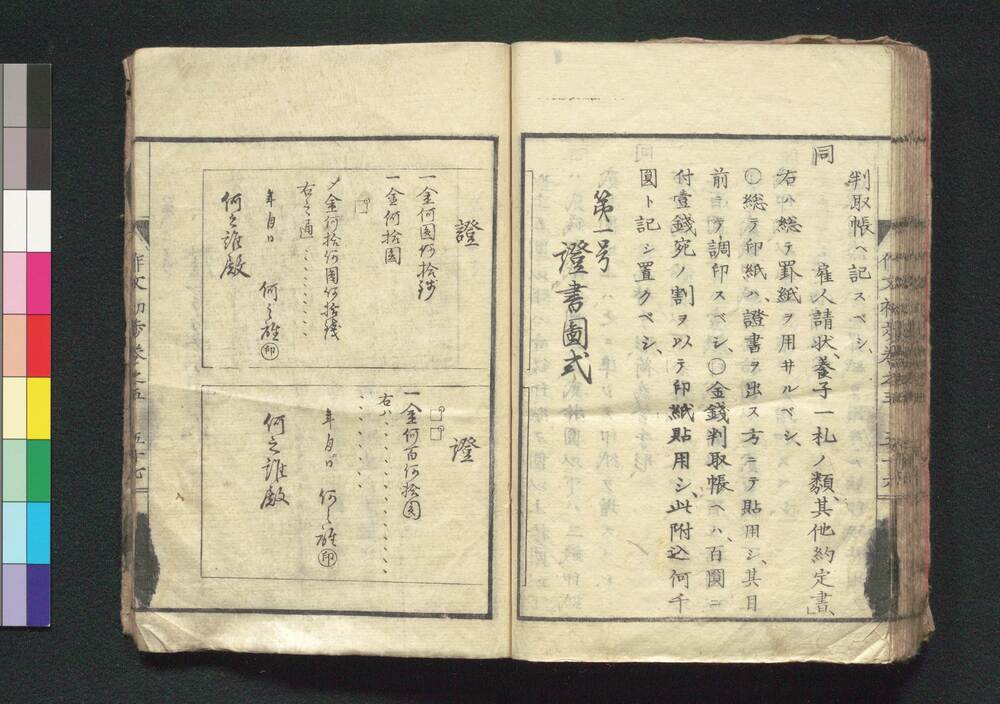 判取帳ヘ記スベシ、
同　雇人請状、養子一札ノ類、其他約定書、
右ハ総テ罫紙ヲ用サルベシ、
〇総テ印紙ハ證書ヲ出ス方ニテ貼用シ、其目
前ニテ調印スベシ、〇金銭判取帳ヘハ、百圓ニ
付壹錢宛ノ割ヲ以テ印紙貼用シ、此附込何千
圓ト記シ置クベシ、
第一号
證書圖式
證
一金何圓何拾銭
一金何拾圓
〆金何拾何圓何拾銭
右之通
年月日
何之誰㊞
何之誰殿
證
一金何百何拾圓
右ハ
年月日
何之誰㊞
何之誰殿
作文初歩巻之五
五十七